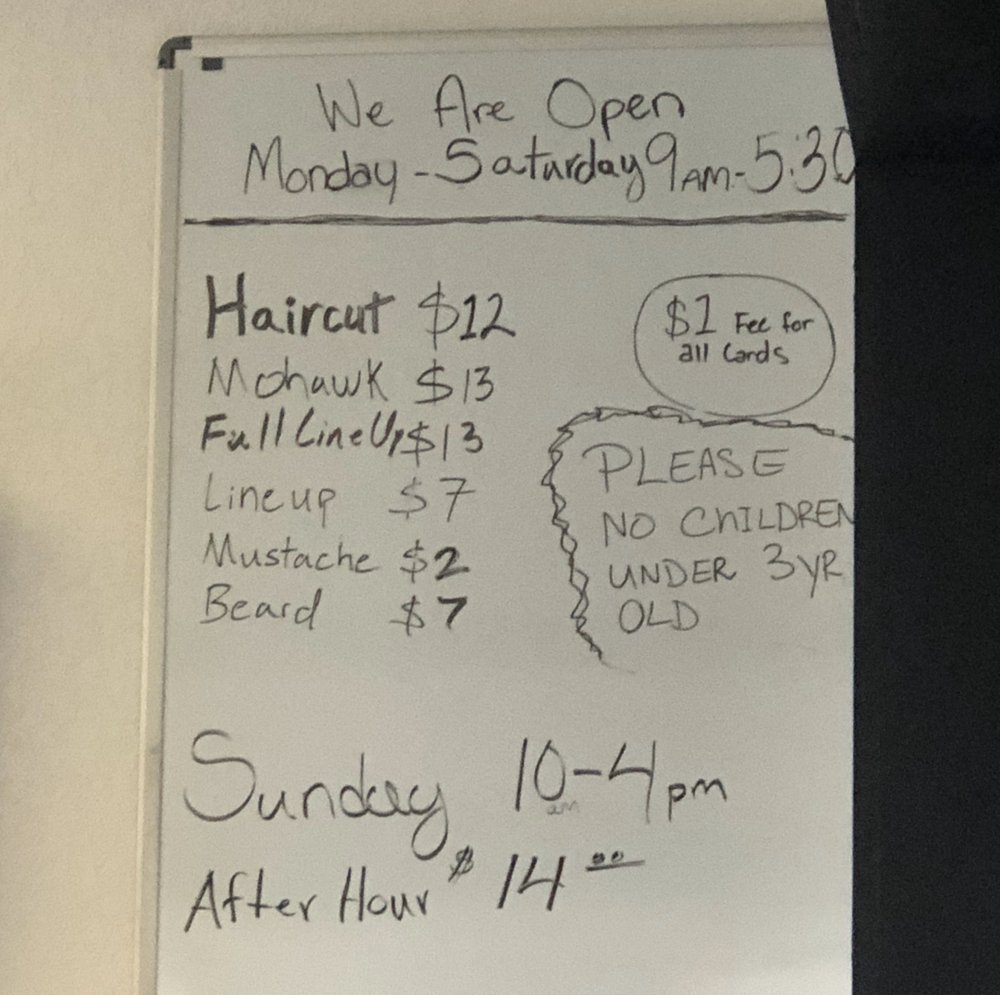 We Are Open
Monday - Saturday 9AM - 5:30
Haircut $12
Mohawk $13
Full Line Up $13
Line up $7
Mustache $2
Beard $7
$1 Fee for
all Cards
PLEASE
NO CHILDREN
UNDER 3 YR
OLD
Sunday 10am-4pm
After Hour $14.00